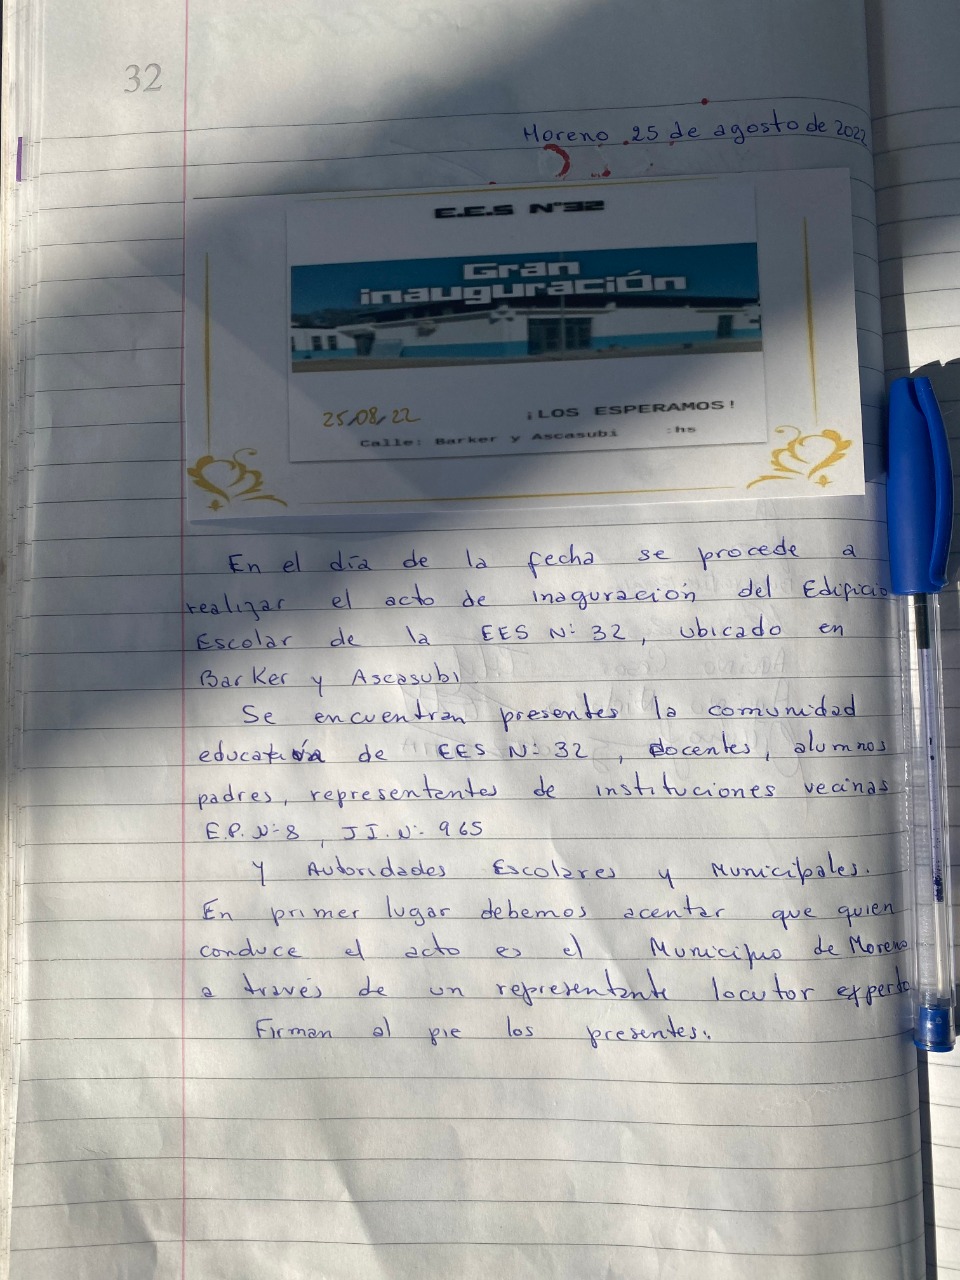 32
Moreno 25 de agosto de 2022
E.E.S N°32
Gran
inauguración
25/08/22
¡LOS ESPERAMOS!
Calle: Barker y Ascasubi :hs
En el día de la fecha se procede a
realizar el acto de inaguración del Edificio
Escolar de la EES N: 32, ubicado en
Barker y Ascasubi
Se encuentran presentes la comunidad
educativa de EES N: 32, docentes, alumnos
padres, representantes de instituciones vecinas
E.P. N: 8, JI. N: 965
y Autoridades Escolares y Municipales.
En primer lugar debemos acentar que quien
conduce el acto es el Municipio de Moreno
a través de un representante locutor experto
Firman al pie los presentes.